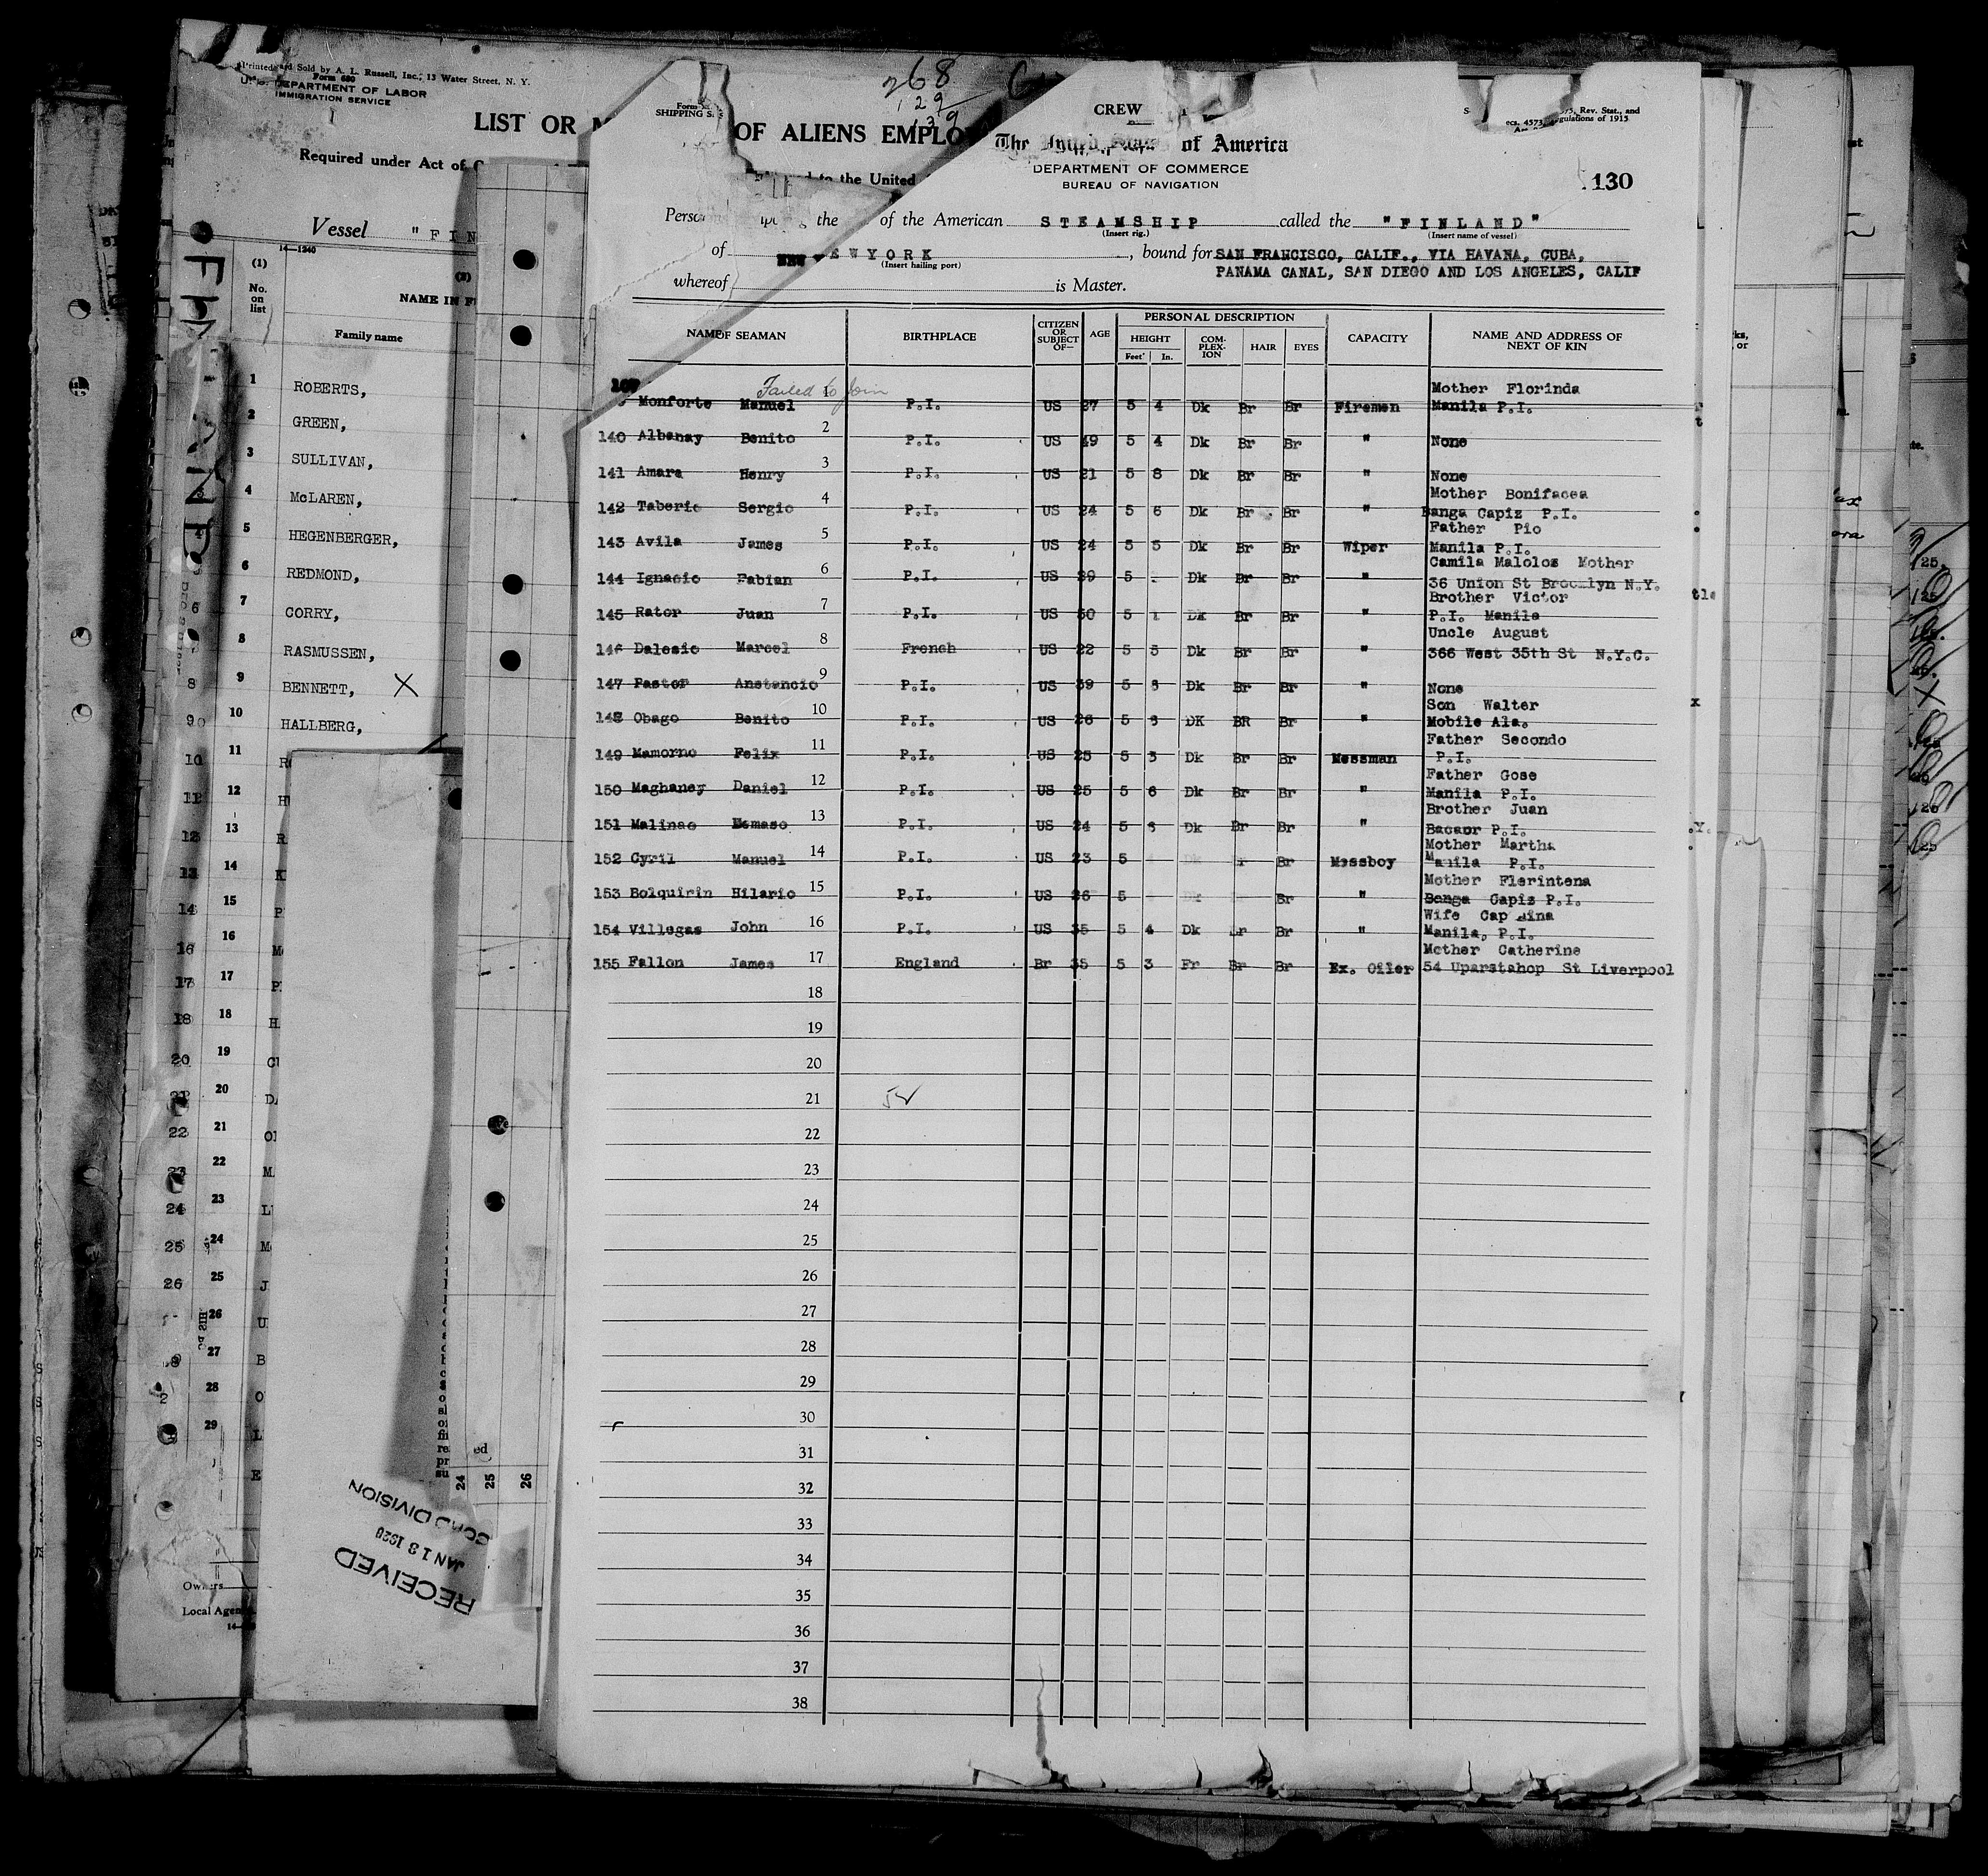 Printed and Sold by A. L. Russell, Inc., 13 Water Street, N. Y.
Form 680
DEPARTMENT OF LABOR
IMMIGRATION SERVICE
LIST OR
OF ALIENS
Required under Act of
to the United
Vessel "FIN
14—1240
(1)
No. on list
NAME IN
Family name
1 ROBERTS,
2 GREEN,
3 SULLIVAN,
4 McLAREN,
5 HEGENBERGER,
6 REDMOND,
7 CORRY,
8 RASMUSSEN,
9 BENNETT, X
10 HALLBERG,
11
12
13
14
15
16
17
18
19
20
21
22
23
24
25
26
27
28
29
Owners
Local Agen
RECEIVED
JAN 13
DIVISION
268
129
139
CREW
Rev. Stat., and
The United States of America
DEPARTMENT OF COMMERCE
BUREAU OF NAVIGATION
130
the of the American STEAMSHIP called the "FINLAND"
(Insert rig.) (Insert name of vessel)
of NEW YORK, bound for SAN FRANCISCO, CALIF., VIA HAVANA, CUBA,
(Insert hailing port)
PANAMA CANAL, SAN DIEGO AND LOS ANGELES, CALIF
whereof is Master.
NAME OF SEAMAN BIRTHPLACE CITIZEN OR SUBJECT OF— AGE PERSONAL DESCRIPTION CAPACITY NAME AND ADDRESS OF NEXT OF KIN
HEIGHT COM-PLEX-ION HAIR EYES
Feet In.
Failed to Join
Mother Florinda
Monforte Manuel 1 P.I. US 27 5 4 Dk Br Br Firemen Manila P.I.
140 Albanay Benito 2 P.I. US 49 5 4 Dk Br Br " None
141 Amara Henry 3 P.I. US 21 5 8 Dk Br Br " None
Mother Bonifacea
142 Taberic Sergio 4 P.I. US 24 5 6 Dk Br Br " Banga Capiz P.I.
Father Pio
143 Avila James 5 P.I. US 24 5 5 Dk Br Br Wiper Manila P.I.
Camila Maloloz Mother
144 Ignacio Fabian 6 P.I. US 39 5 Dk Br Br " 36 Union St Brooklyn N.Y.
Brother Victor
145 Rator Juan 7 P.I. US 30 5 Dk Br Br " P.I. Manila
Uncle August
146 Dalesio Marcel 8 French US 22 5 5 Dk Br Br " 366 West 35th St N.Y.C.
147 Pastor Anstancio 9 P.I. US 39 5 Dk Br Br " None
Son Walter
148 Obago Benito 10 P.I. US 26 5 DK BR Br " Mobile Ala.
Father Secondo
149 Mamorno Felix 11 P.I. US 25 5 3 Dk Br Br Messman P.I.
Father Gose
150 Maghaney Daniel 12 P.I. US 25 5 6 Dk Br Br " Manila P.I.
Brother Juan
151 Malinao 13 P.I. US 24 5 Dk Br Br " Bacaor P.I.
Mother Martha
152 Cyril Manuel 14 P.I. US 23 5 Br Messboy Manila P.I.
Mother Flerintena
153 Bolquirin Hilario 15 P.I. US 26 5 Br " Banga Capiz P.I.
Wife
154 Villegas John 16 P.I. US 35 5 4 Dk Br Br " Manila, P.I.
Mother Catherine
155 Fallon James 17 England Br 35 5 3 Fr Br Br Ex. Oiler 54 Uparstahop St Liverpool
18
19
20
21
22
23
24
25
26
27
28
29
30
31
32
33
34
35
36
37
38